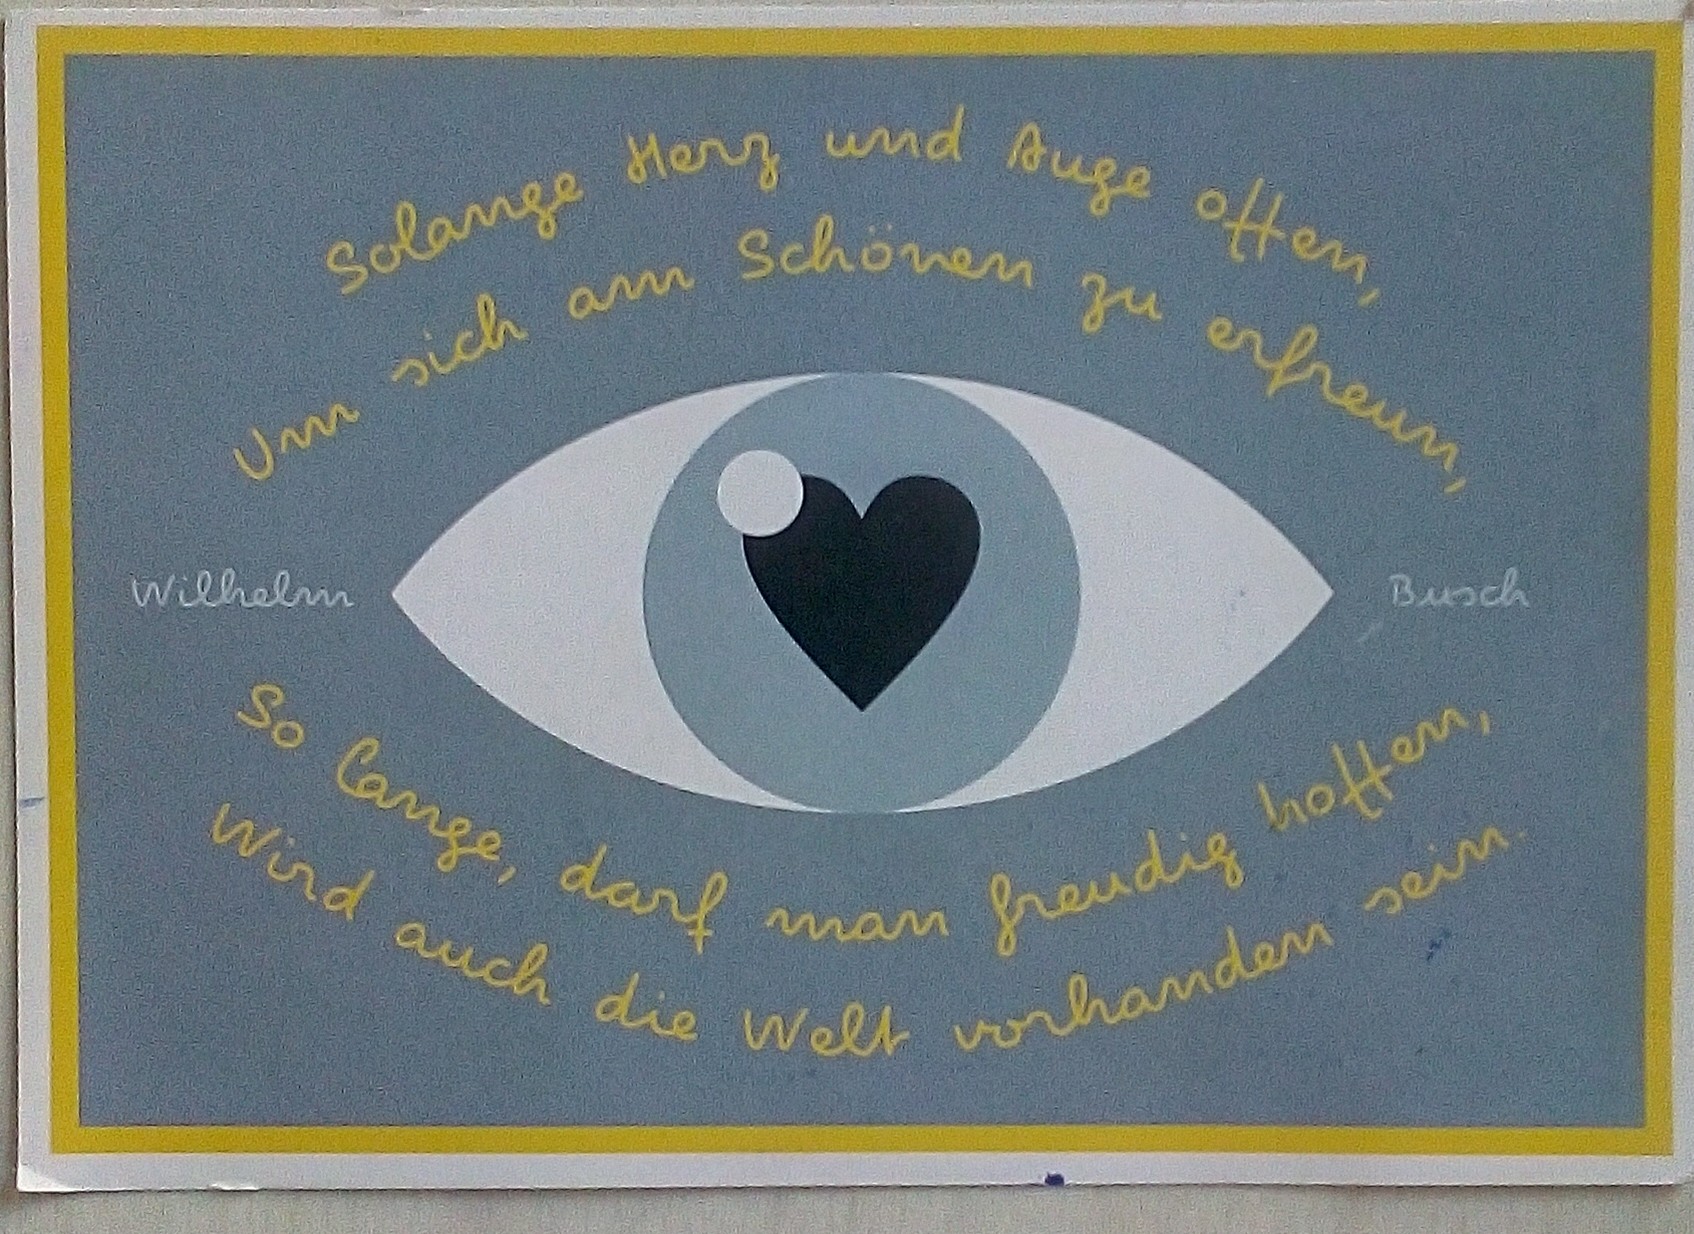 Solange Herz und Auge offen,
Um sich am Schönen zu erfreun,
Wilhelm Busch
So lange, darf man freudig hoffen,
Wird auch die Welt vorhanden sein.